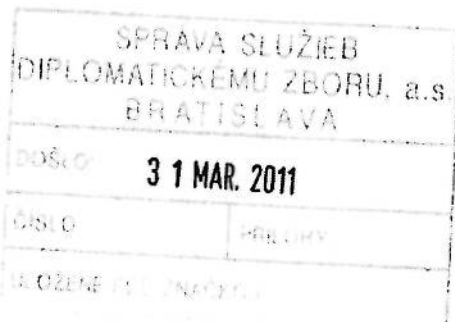 SPRÁVA SLUŽIEB
DIPLOMATICKÉMU ZBORU, a.s.
BRATISLAVA
DOŠLO
31 MAR. 2011
ČÍSLO PRÍLOHY
ULOŽENÉ POD ZNAČKOU